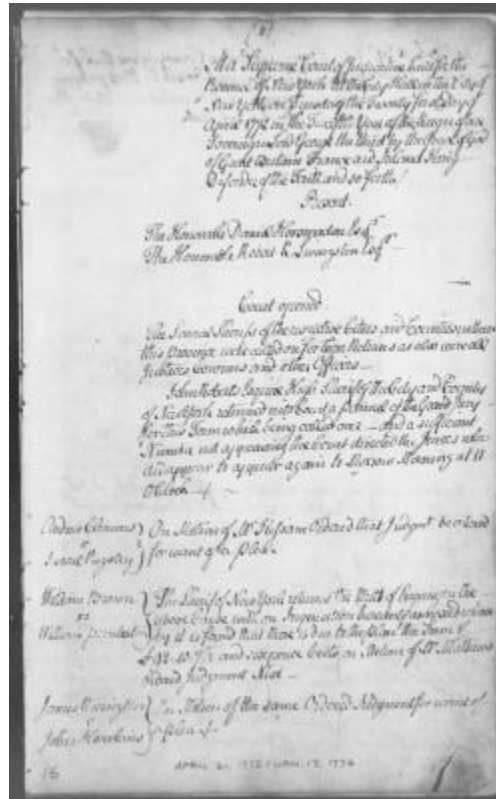 (1)
At a Supreme Court of Judicature held for the
Province of New York at the City Hall in the City of
New York on Tuesday the Twenty first day of
April 1772 in the Twelfth Year of the Reign of our
Sovereign Lord George the third by the Grace of God
of Great Britain France and Ireland King
Defender of the Faith and so forth
Present
The Honorable Daniel Horsmanden Esqr
The Honorable Robert R. Livingston Esqr
Court opened
The Several Sheriffs of the respective Cities and Counties within
this Province were called on for their Returns as also were all
Justices Coroners and other Officers
John Roberts Esquire High Sheriff of the City and County
of New York returned into Court a pannel of the Grand Jury
for this Term which being called over and a sufficient
Number not appearing the Court directed the Jurors who
did appear to appear again to Morrow Morning at 11
O'Clock
On Motion of Mr Ordered that Judgmt be entered
for want of a plea
William Brown
vs
William
The Sheriff of New York returns the Writ of Enquiry in the
above Cause with an Inquisition annexed
by it is found that there is due to the plain the Sum of
and sixpence Costs on Motion of Mr Mathews
Ordered Judgment Nisi
James
John Hawkins
On Motion of the same Ordered Judgment for want of
a plea
16
APRIL 21, 1772 - JAN. 17, 1776